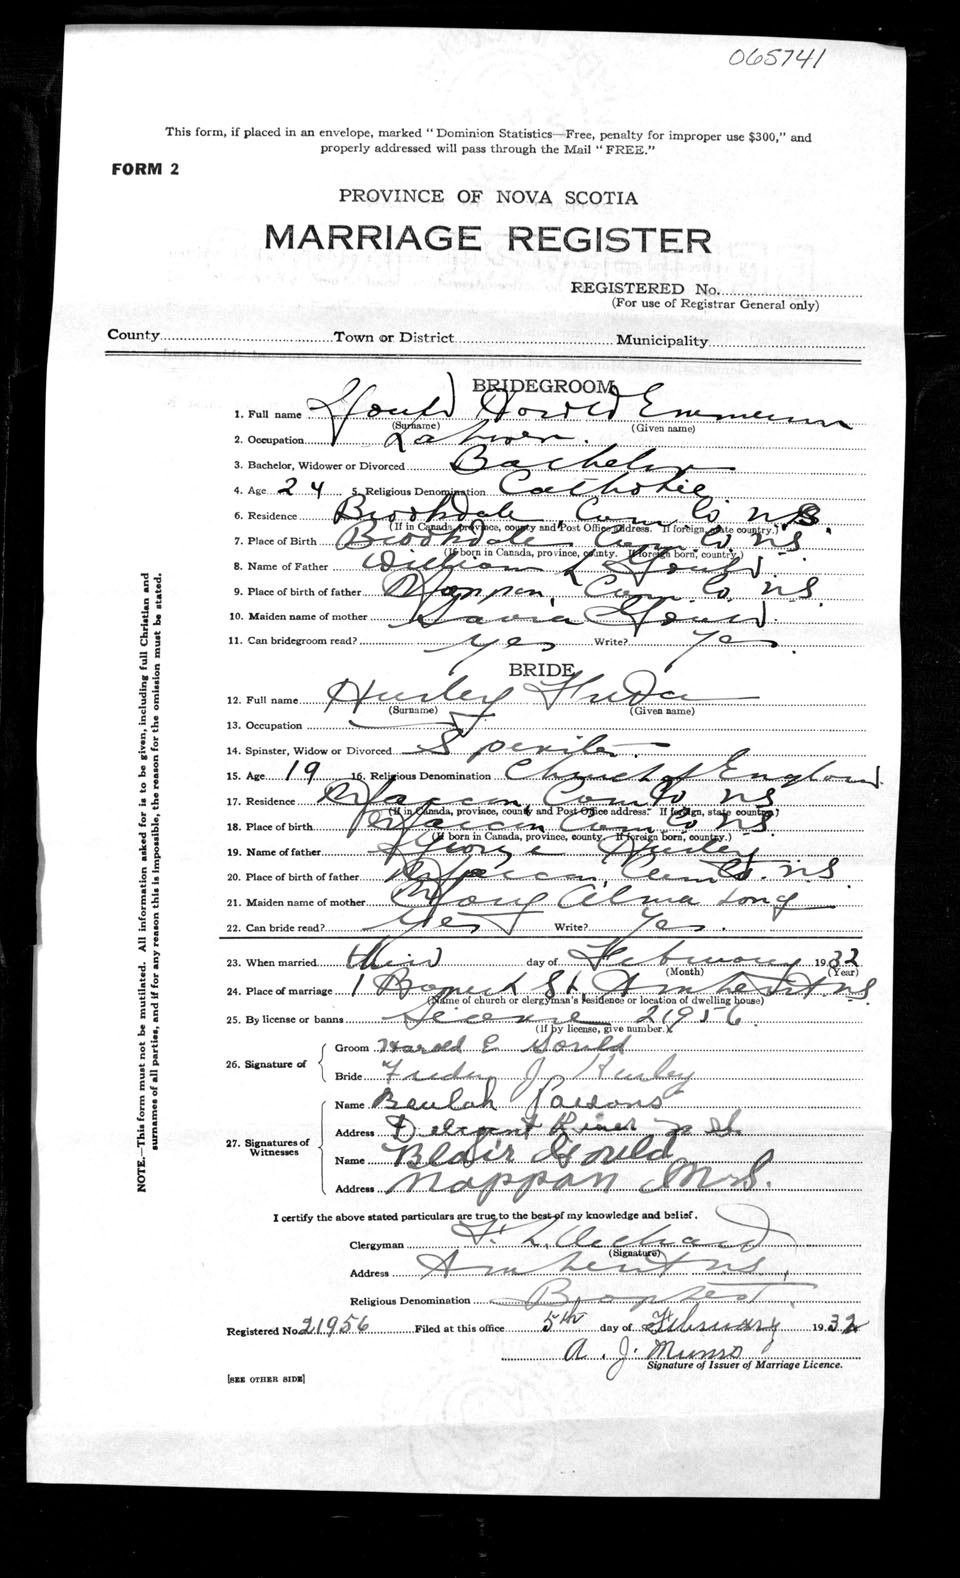 065741
This form, if placed in an envelope, marked "Dominion Statistics—Free, penalty for improper use $300," and
properly addressed will pass through the Mail "FREE."
FORM 2
PROVINCE OF NOVA SCOTIA
MARRIAGE REGISTER
REGISTERED No.
(For use of Registrar General only)
County Town or District Municipality
BRIDEGROOM
1. Full name Gould Harold Emmerson
(Surname) (Given name)
2. Occupation Laborer.
3. Bachelor, Widower or Divorced Bachelor
4. Age 24 5. Religious Denomination Catholic
6. Residence Brookdale, Cum. Co. N.S.
(If in Canada, province, county and Post Office address. If foreign, state country.)
7. Place of Birth Brookdale Cum. Co. N.S.
(If born in Canada, province, county. If foreign born, country.)
8. Name of Father William L Gould.
9. Place of birth of father Nappan, Cum. Co. N.S.
10. Maiden name of mother Gould
11. Can bridegroom read? Yes Write? Yes.
BRIDE
12. Full name Hurley Frieda
(Surname) (Given name)
13. Occupation
14. Spinster, Widow or Divorced Spinster
15. Age 19 16. Religious Denomination Church of England.
17. Residence Cum Co NS
(If in Canada, province, county and Post Office address. If foreign, state country.)
18. Place of birth Cum Co NS.
(If born in Canada, province, county. If foreign born, country.)
19. Name of father George Hurley
20. Place of birth of father Cum Co. N.S.
21. Maiden name of mother Mary Alma Long
22. Can bride read? Yes Write? Yes.
23. When married third day of February 1932
(Month) (Year)
24. Place of marriage 1 St. Amherst N.S.
(Name of church or clergyman's residence or location of dwelling house)
25. By license or banns License 21956.
(If by license, give number.)
26. Signature of
Groom Harold E Gould
Bride Frieda J Hurley
27. Signatures of Witnesses
Name Beulah Parsons
Address River
Name Blair Gould
Address Nappan N.S.
I certify the above stated particulars are true to the best of my knowledge and belief.
Clergyman
(Signature)
Address Amherst N.S.
Religious Denomination Baptist.
Registered No. 21956 Filed at this office 5th day of February 1932
A. J. Munro
Signature of Issuer of Marriage Licence.
[SEE OTHER SIDE]
NOTE.—This form must not be mutilated. All information asked for is to be given, including full Christian and
surnames of all parties, and if for any reason this is impossible, the reason for the omission must be stated.